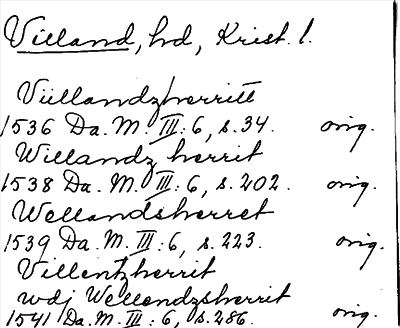 Villand, hd, Krist. l.
Viillandzherritt
1536 Da. M. III: 6, s. 34. orig.
Willandz herrit
1538 Da. M. III: 6, s. 202. orig.
Wellandsherret
1539 Da. M. III: 6, s. 223. orig.
Villentzherrit
wdj Wellendzsherrit
1541 Da. M. III: 6, s. 286. orig.